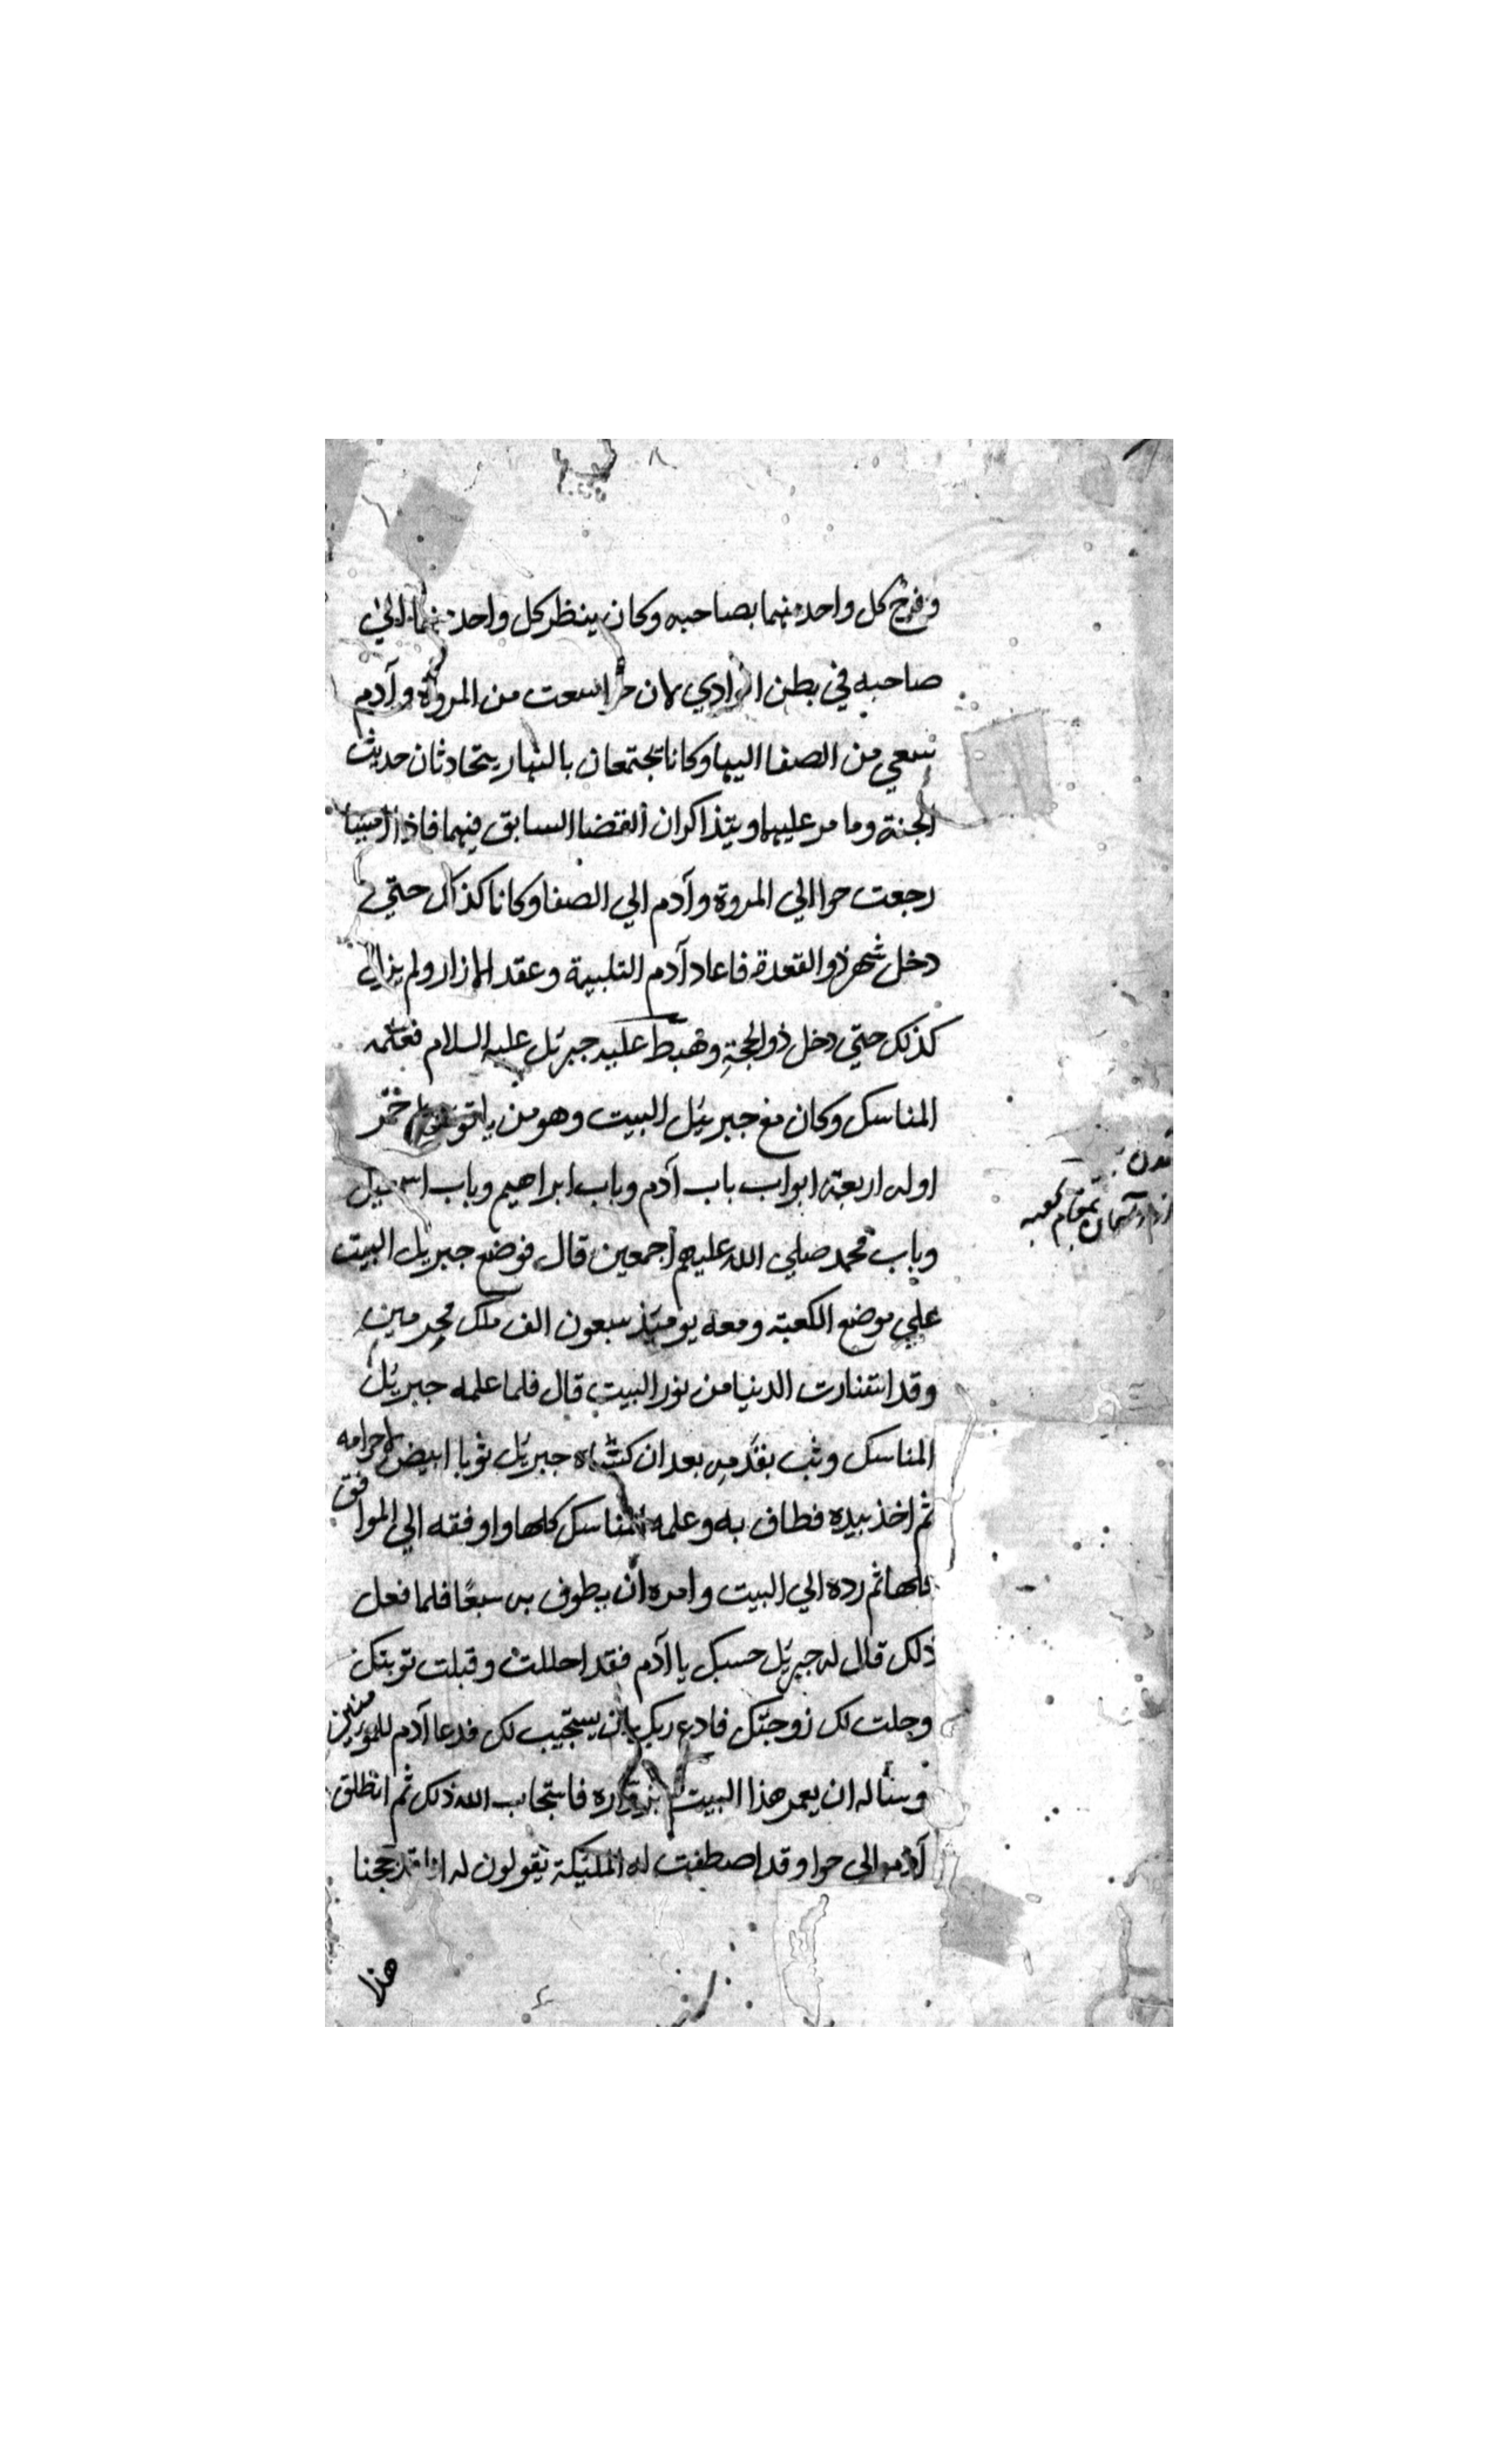 وفرح كل واحد منهما بصاحبه وكان ينظر كل واحد منهما الي
صاحبه في بطن الوادي لان حوا سعت من المروة وآدم
سعي من الصفا اليها وكانا يجتمعان بالنهار يتحادثان حديث
الجنة وما مر عليهما ويتذاكران القضا السابق فيهما فاذا امسيا
رجعت حوا الي المروة وآدم الي الصفا وكانا كذلك حتي
دخل شهر ذو القعدة فاعاد آدم التلبية وعقد الازار ولم يزال
كذلك حتي دخل ذو الحجة وهبط عليه جبرئل عليه السلام فعلمه
المناسك وكان مع جبريئل البيت وهو من ياقوته
اوله اربعة ابواب باب آدم وباب ابراهيم وباب اسمعيل
وباب محمد صلي الله عليهم أجمعين قال فوضع جبريل البيت
علي موضع الكعبة ومعه يومئذ سبعون الف ملك محرمين
وقد الدنيا من نور البيت قال فلما علمه جبرئل
المناسك وثب بقدمه بعد ان كساه جبرئل ثوبا ابيض لاحرامه
ثم اخذ بيده فطاف به وعلمه المناسك كلها واوفقه الي الموافق
كلها ثم رده الي البيت وامره ان يطوف به سبعا فلما فعل
ذلك قال له جبرئل حسبك يا آدم فقد احللت وقبلت توبتك
وحلت لك زوجتك فادع ربك يستجيب لك فدعا آدم للمومنين
وسأله ان يعمر هذا البيت بزواره فاستجاب الله ذلك ثم انطلق
آدم الي حوا وقد اصطفت له الملئكة يقولون له انا قد حججنا
هذا
بمقام كعبه